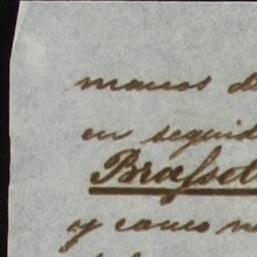 manos de
en seguid
Brasset
y como n